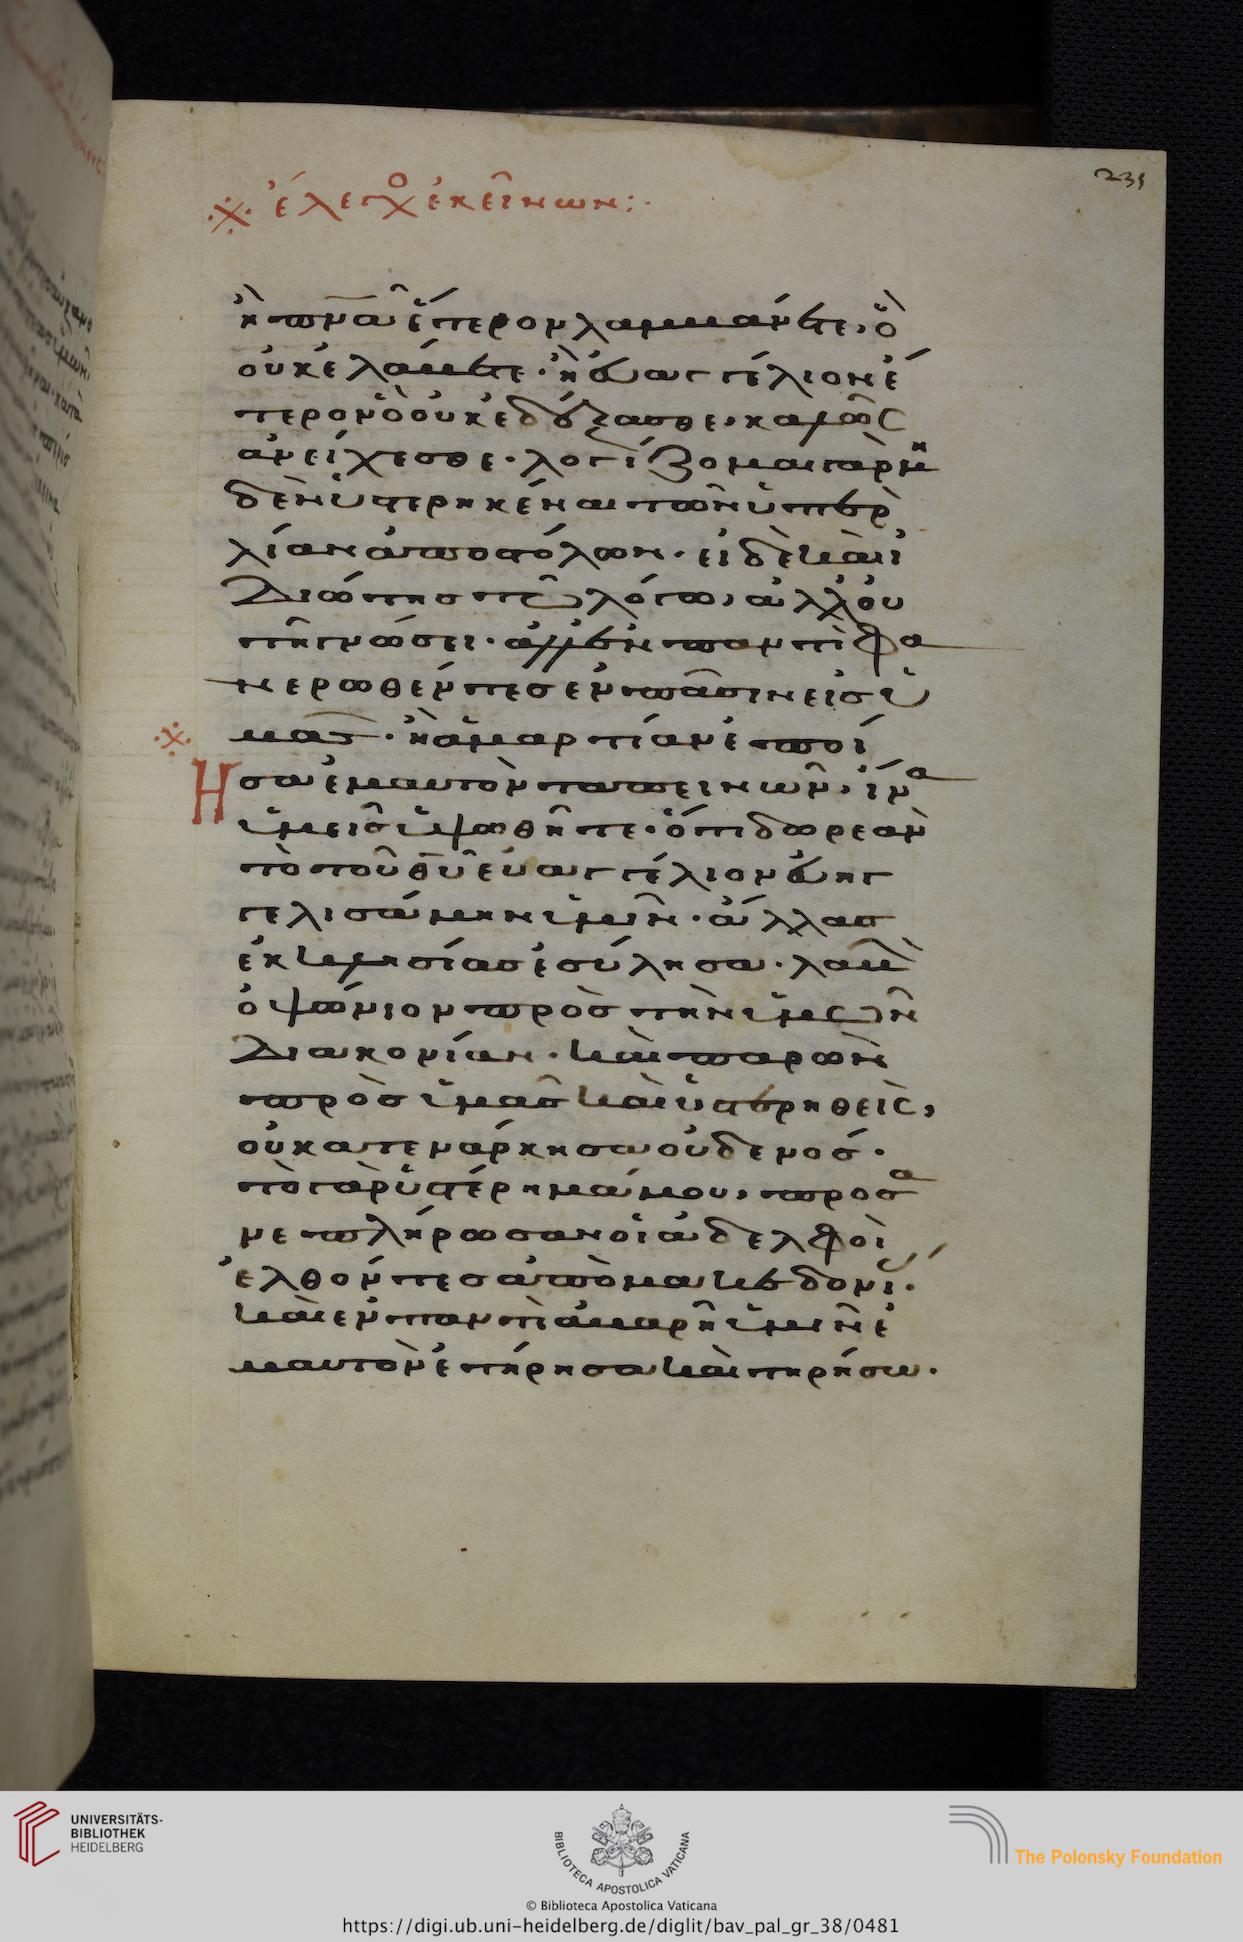 231
ἐλεγχο ἐκείνων:
ἢ πνᾶ ἕτερον λαμμάνετε, ὃ
οὐκ ἐλάμετε· ἢ εὐαγγέλιον ἕ
τερον ὃ οὐκ ἐδέξασθε, καλῶς
ἀνείχεσθε· λογίζομαι γὰρ μη
δὲν ὑστερηκέναι τῶν ὑπὲρ
λίαν ἀποστόλων· εἰ δὲ καὶ ἰ
διώτης τῶ λόγω, ἀλλ' οὐ
τῆ γνώσει· ἀλλ' ἐν παντὶ φα
νερωθέντες ἐν πᾶσιν εἰς ὑ
μᾶς· ἢ ἁμαρτίαν ἐποί
Ησα ἐμαυτὸν ταπεινῶν, ἵνα
ὑμεῖς ὑψωθῆτε· ὅτι δωρεὰν
τὸ τοῦ θῦ εὐαγγέλιον εὐηγ
γελισάμην ὑμῖν· ἄλλας
ἐκκλησίας ἐσύλησα· λαβὼν
ὀψώνιον πρὸς τὴν ὑμῶν
διακονίαν· καὶ παρὼν
πρὸς ὑμᾶς καὶ ὑστερηθεὶς,
οὐ κατενάρκησα οὐδενός·
τὸ γὰρ ὑστέρημά μου, προσα
νεπλήρωσαν οἱ ἀδελφοὶ
ἐλθόντες ἀπὸ μακεδονί·
καὶ ἐν παντὶ ἀβαρῆ ὑμῖν ἐ
μαυτὸν ἐτήρησα καὶ τηρήσω·
UNIVERSITÄTS-
BIBLIOTHEK
HEIDELBERG
BIBLIOTECA APOSTOLICA VATICANA
The Polonsky Foundation
© Biblioteca Apostolica Vaticana
https://digi.ub.uni-heidelberg.de/diglit/bav_pal_gr_38/0481